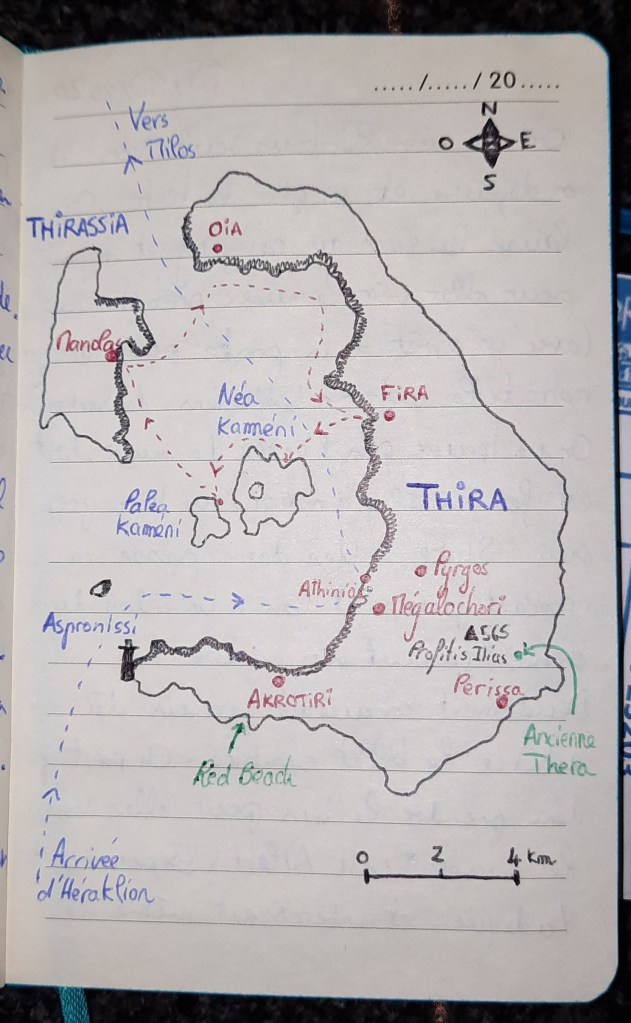 ...../...../ 20.....
N
O E
S
Vers
Milos
THIRASSIA
OiA
Manolas
Néa
Kaméni
FiRA
THiRA
Paléa
Kaméni
Pyrgos
Athinios
Mégalochori
Aspronissi
▲565
Profitis Ilias
Périssa
AKROTiRi
Ancienne
Thera
Red Beach
Arrivée
d'Héraklion
0 2 4 km